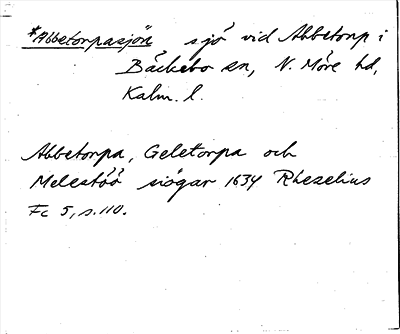 *Abbetorpasjön sjö vid Abbetorp i
Bäckebo sn, N. Möre hd,
Kalm. l.
Abbetorpa, Geletorpa och
Melestöö siögar 1634 Rhezelius
Fc 5, s. 110.